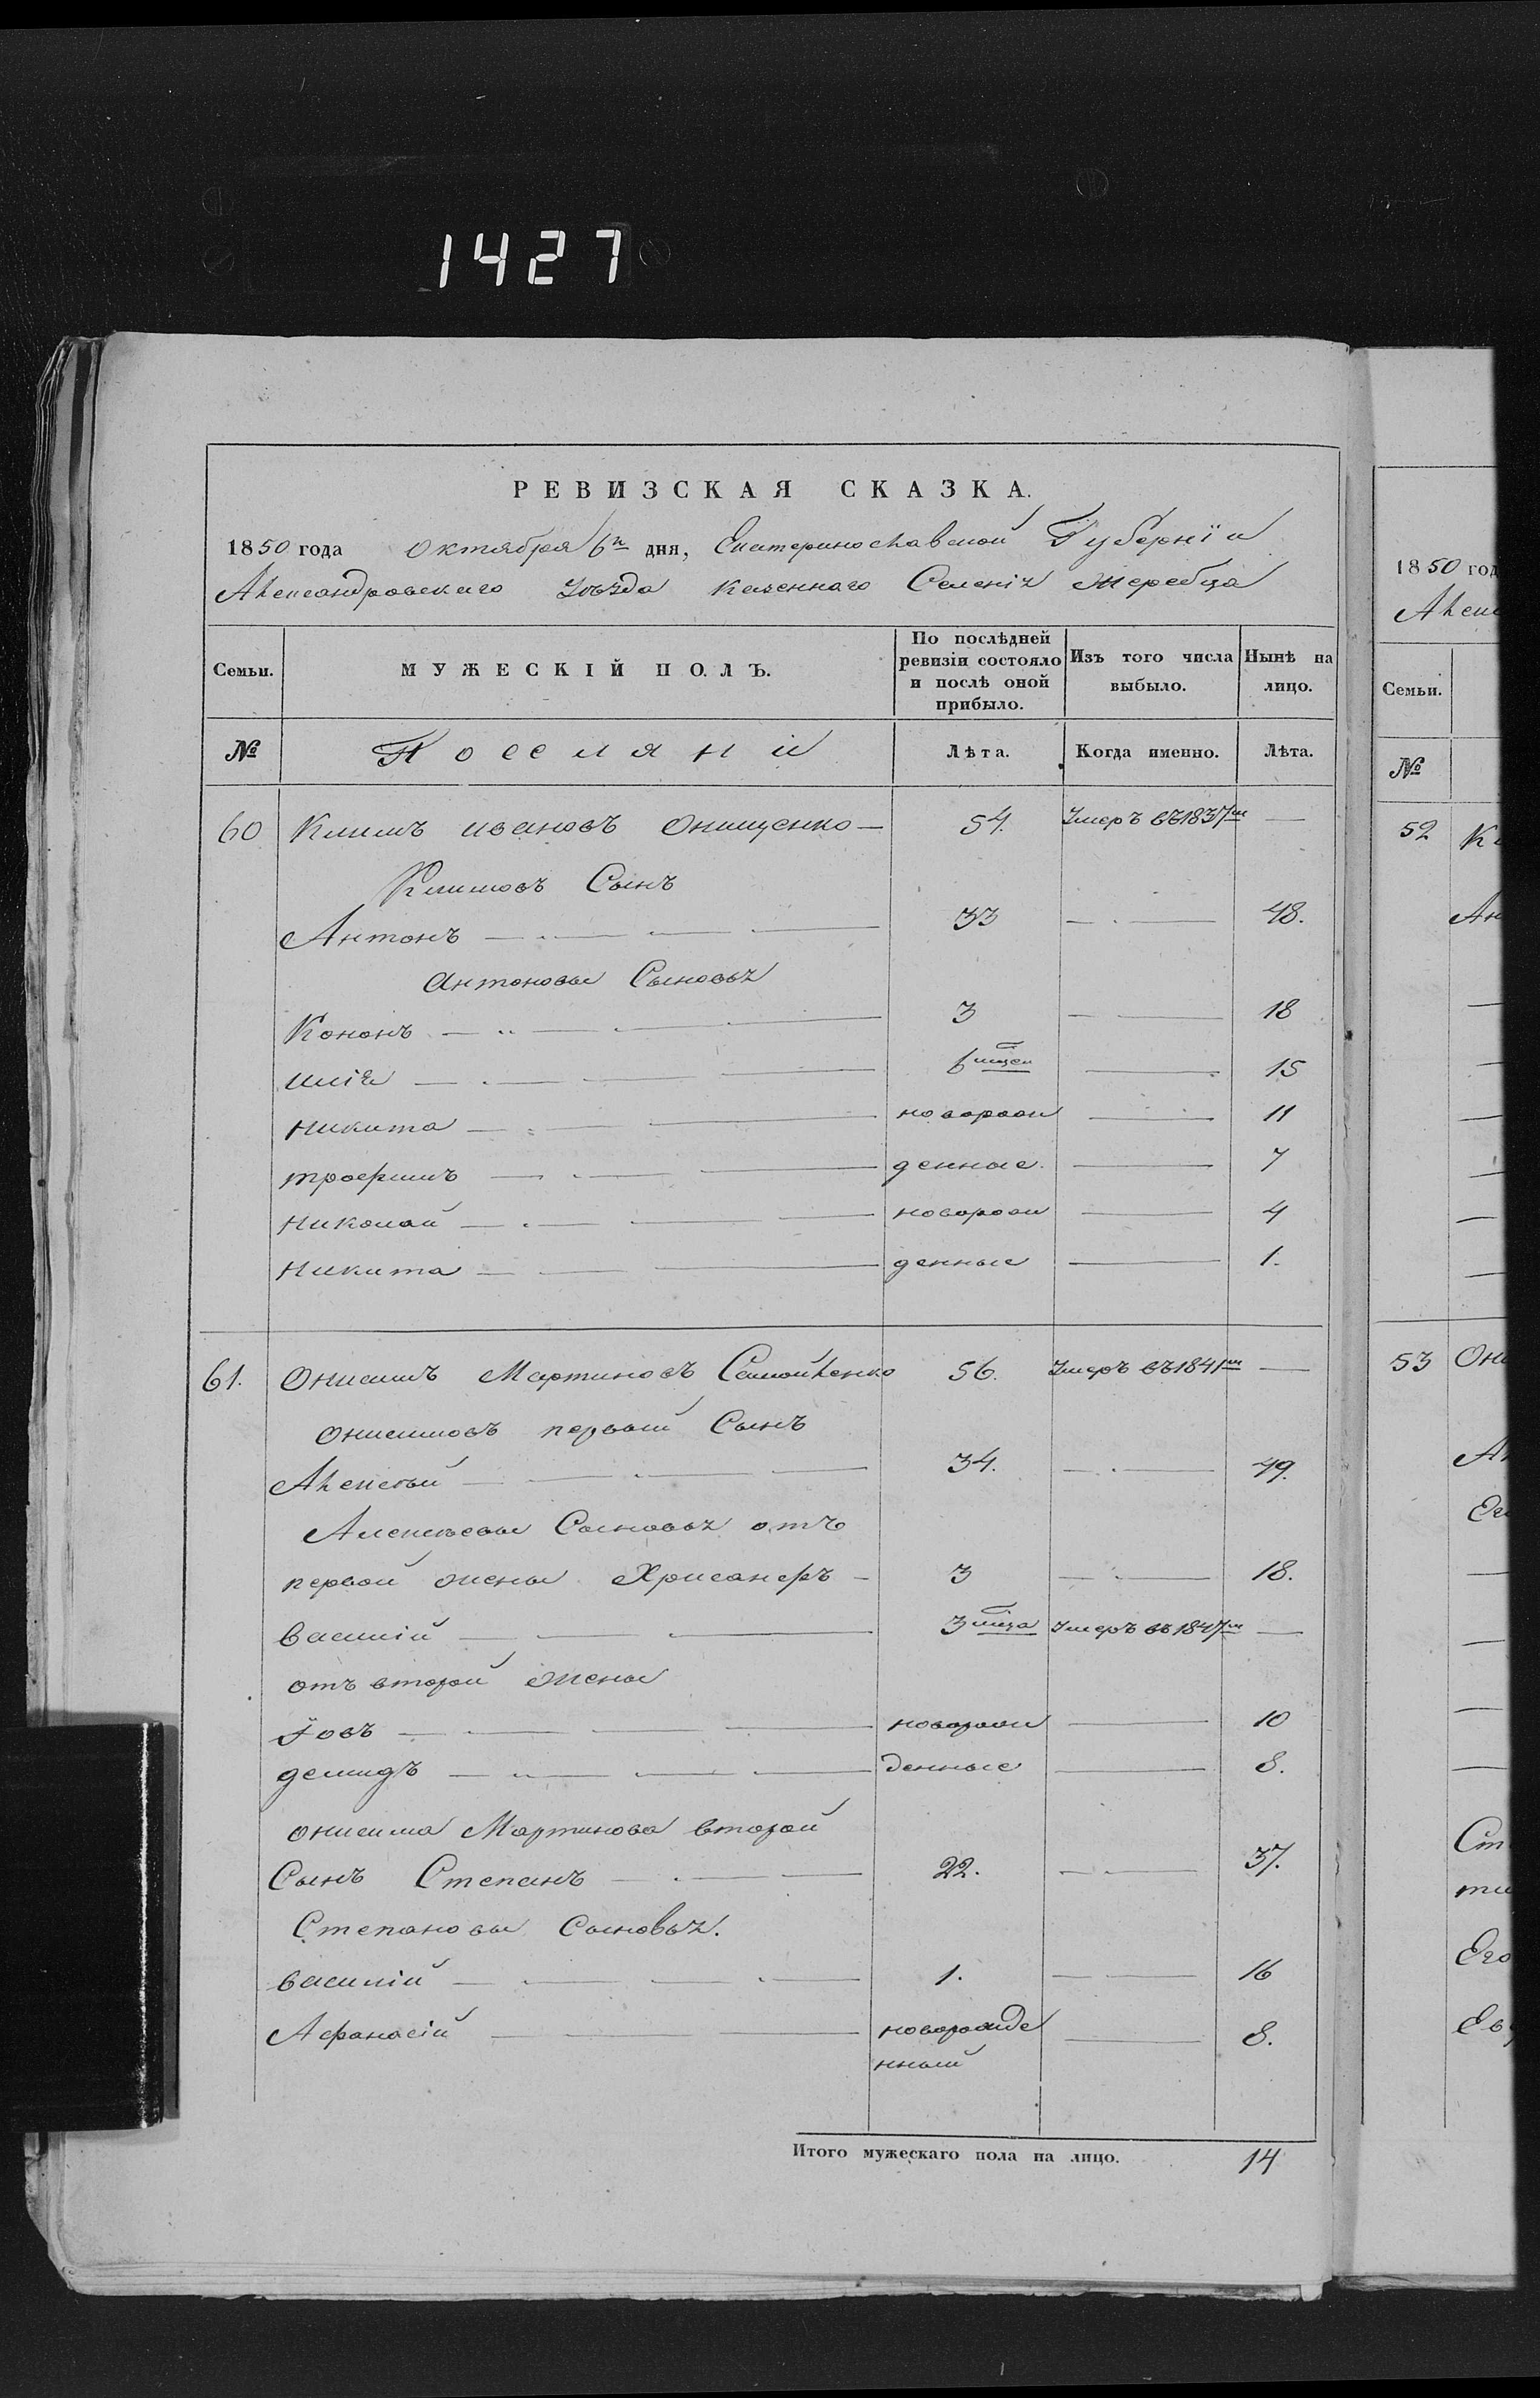 1427
РЕВИЗСКАЯ СКАЗКА.
1850 года Октября 6го дня, Екатеринославской Губерніи
Александровскаго Уѣзда казеннаго Селенія Жеребца
Семьи. МУЖЕСКІЙ ПОЛЪ. По послѣдней ревизіи состояло и послѣ оной прибыло. Изъ того числа выбыло. Нынѣ на лицо.
№ Поселяни Лѣта. Когда именно. Лѣта.
60 Климъ Ивановъ Онищенко — 54. Умеръ въ 1837м —
Климовъ Сынъ
Антонъ 33 — 48.
Антоновы Сыновья
Кононъ 3 — 18
Илія 6 мцеи — 15
Никита новорож — 11
Трофимъ денные. — 7
Николай новорож — 4
Никита денные — 1.
61. Онисимъ Мартиновъ Самойленко 56. Умеръ въ 1841м —
Онисимовъ первый Сынъ
Алексѣй 34. — 49.
Алексѣевы Сыновья отъ
первой жены Хрисанфъ — 3 — 18.
Василій 3 мца Умеръ въ 1847м —
отъ второй жены
Іовъ новорож — 10
Демидъ денные — 8.
Онисима Мартинова второй
Сынъ Степанъ 22. — 37.
Степановы Сыновья.
Василій 1. — 16
Афанасій новорожде — 8.
нный
Итого мужескаго пола на лицо. 14
1850 год
Алекс
Семьи.
№
52
53